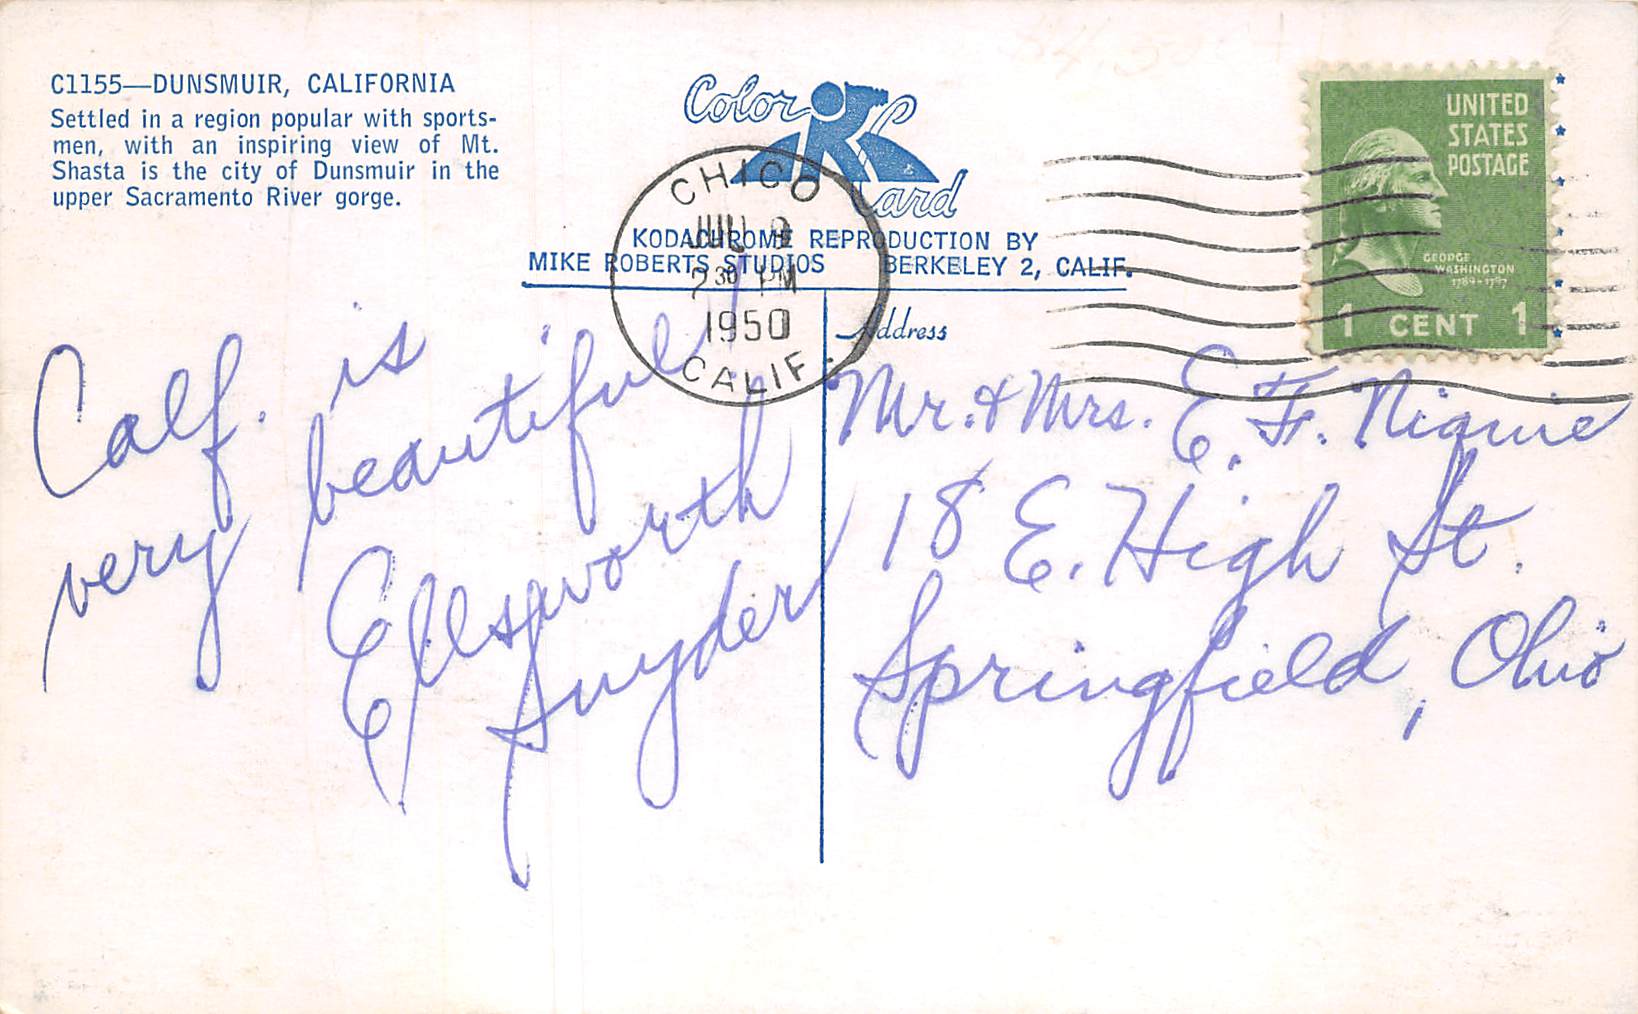 C1155—DUNSMUIR, CALIFORNIA
Settled in a region popular with sports-
men, with an inspiring view of Mt.
Shasta is the city of Dunsmuir in the
upper Sacramento River gorge.
Color
Card
KODACHROME REPRODUCTION BY
MIKE ROBERTS STUDIOS BERKELEY 2, CALIF.
CHICO
JUL 9
2 30 PM
1950
CALIF.
UNITED
STATES
POSTAGE
GEORGE
WASHINGTON
1789-1797
1 CENT 1
Calf. is
very beautiful
Ellsworth
Snyder
Address
Mr. & Mrs. E. F.
18 E. High St.
Springfield, Ohio